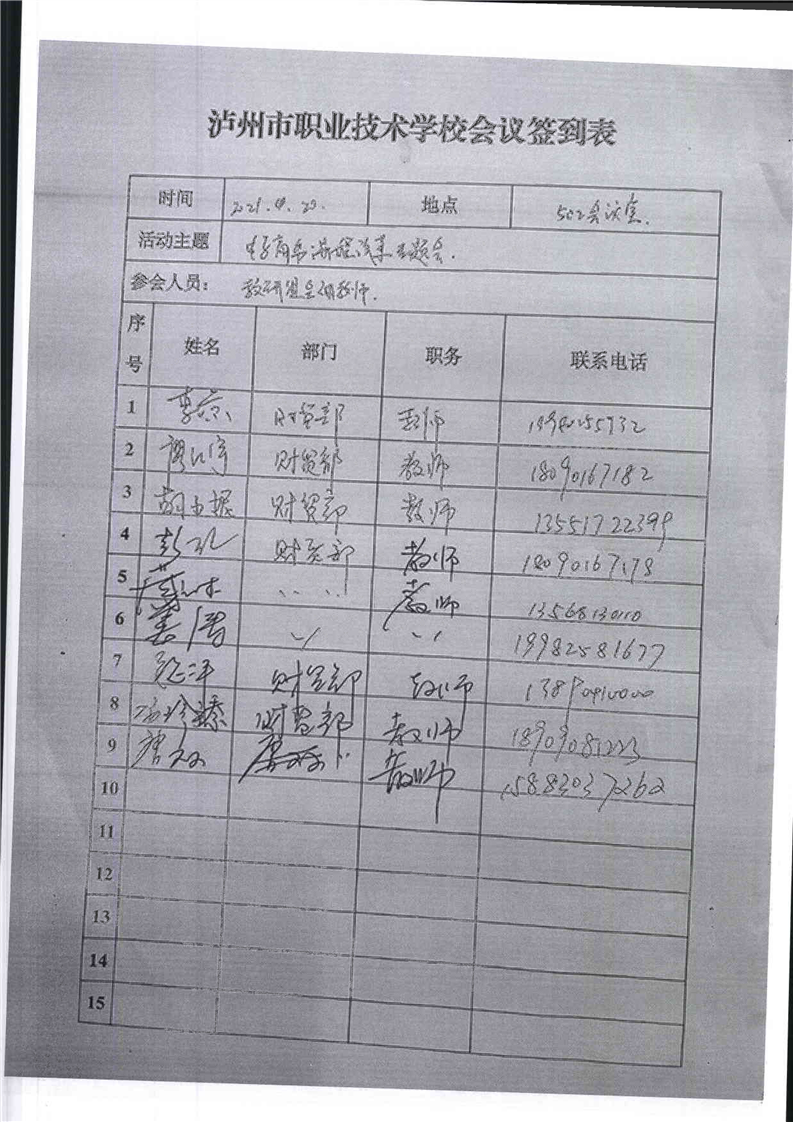 泸州市职业技术学校会议签到表
时间 2021.4.20. 地点 502会议室.
活动主题 电子商务课程改革主题会.
参会人员: 教研组全体教师.
序号 姓名 部门 职务 联系电话
1 李 财贸部 教师
2 财贸部 教师 18090167182
3 胡 财贸部 教师 13551722399
4 彭 财贸部 教师 18090167178
5 〃 〃 教师 13568130110
6 姜 〃 〃 19982581677
7 财贸部 教师
8 财贸部 教师 18909081223
9 唐 教师 15883037262
10
11
12
13
14
15